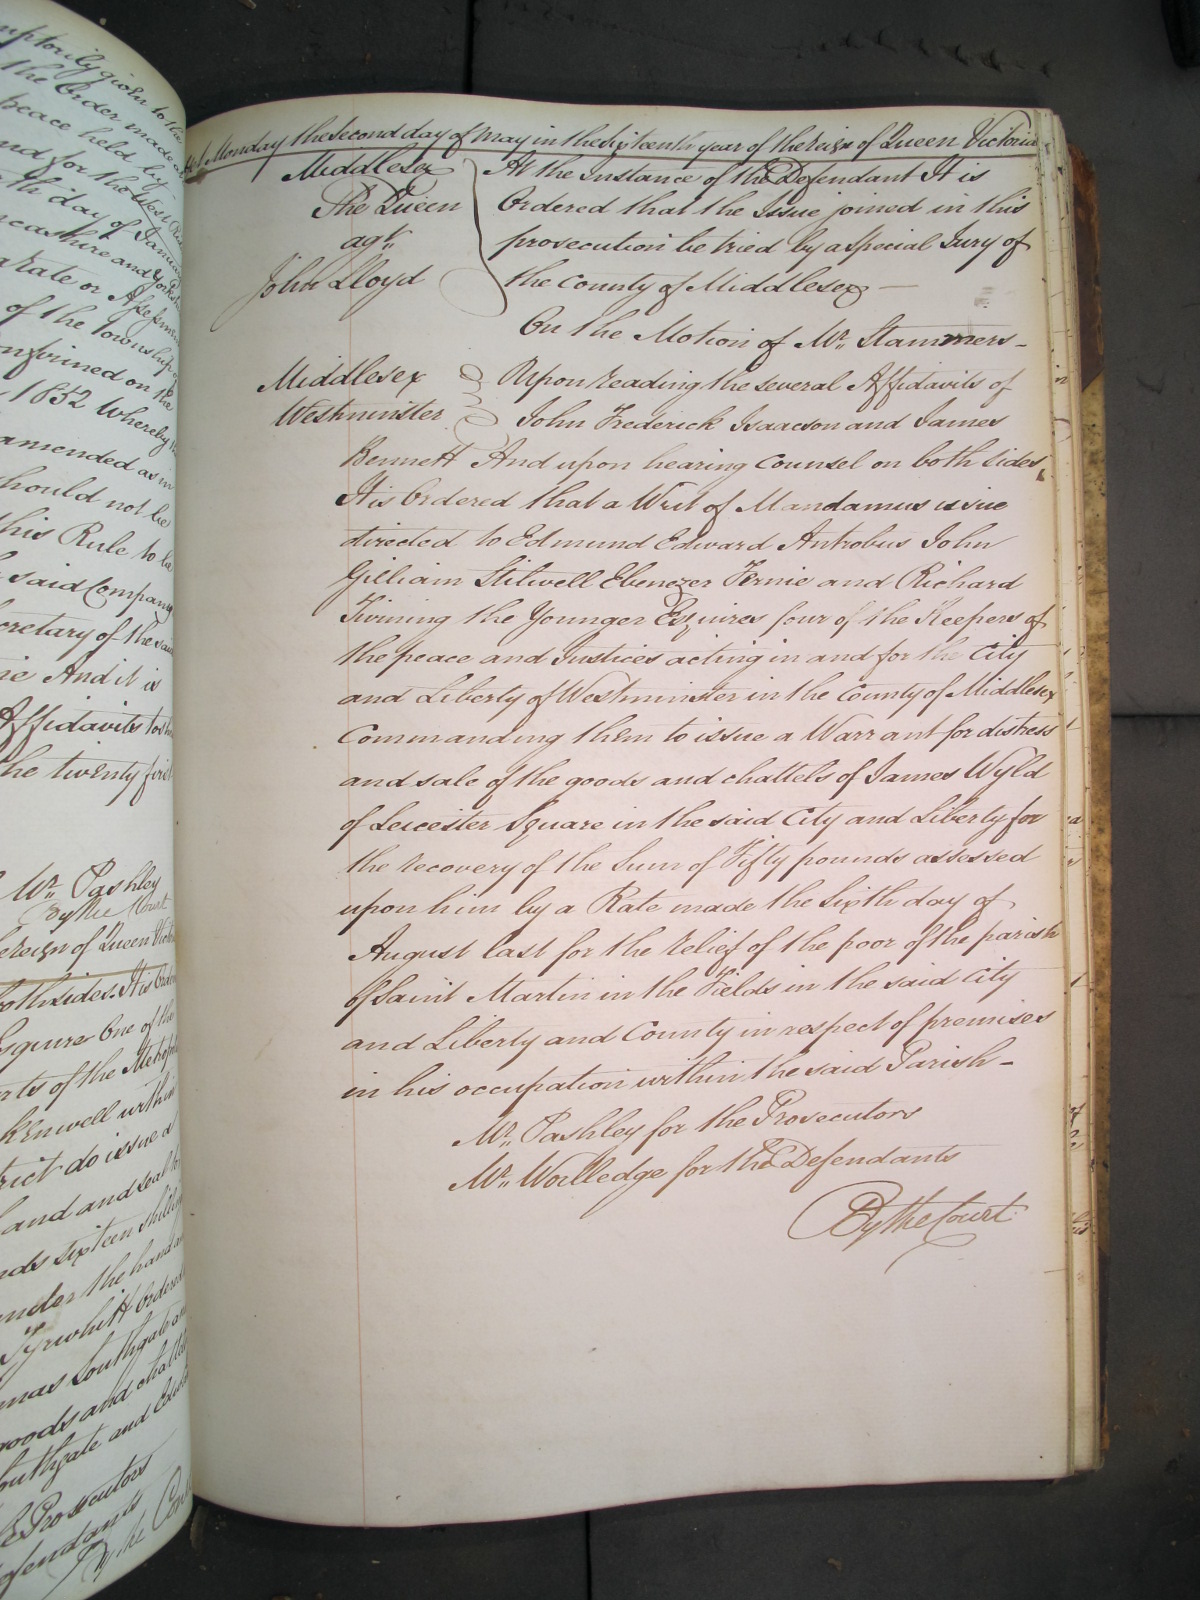 mptorily given to the
the Order made a
peace held by
nd for the West Rid
th day of Januar
ncashire and Yorksh
a Rate or Assessme
of the Township
onfirmed on the
1852 Whereby
amended as in
hould not be
his Rule to be
said Company
cretary of the sa
ie And it is
Affidavits to
he twenty first
Mr. Pashley
By the Court
e reign of Queen Vict
oth sides It is Orde
squire One of the
rts of the Metropo
kenwell within
rict do issue a
hand and seal
nds sixteen shillin
nder the hand
Tyrwhitt Ordere
mas Southgate a
goods and chattel
outhgate and
e Prosecutors
efendants
By the Court
At Monday the second day of May in the sixteenth year of the reign of Queen Victoria
Middlesex At the Instance of the Defendant It is
The Queen Ordered that the Issue joined in this
agt. prosecution be tried by a special Jury of
John Lloyd the County of Middlesex
On the Motion of Mr. Stammers
Middlesex Upon reading the several Affidavits of
Westminster John Frederick Isaacson and James
Bennett And upon hearing Counsel on both sides
It is Ordered that a Writ of Mandamus issue
directed to Edmund Edward Antrobus John
Gilliam Stilwell Ebenezer Fernie and Richard
Twining the Younger Esquires four of the Keepers of
the peace and Justices acting in and for the City
and Liberty of Westminster in the County of Middlesex
Commanding them to issue a Warrant for distress
and sale of the goods and chattels of James Wyld
of Leicester Square in the said City and Liberty for
the recovery of the Sum of Fifty pounds assessed
upon him by a Rate made the Sixth day of
August last for the relief of the poor of the parish
of Saint Martin in the Fields in the said City
and Liberty and County in respect of premises
in his occupation within the said Parish
Mr. Pashley for the Prosecutors
Mr. Worlledge for the Defendants
By the Court